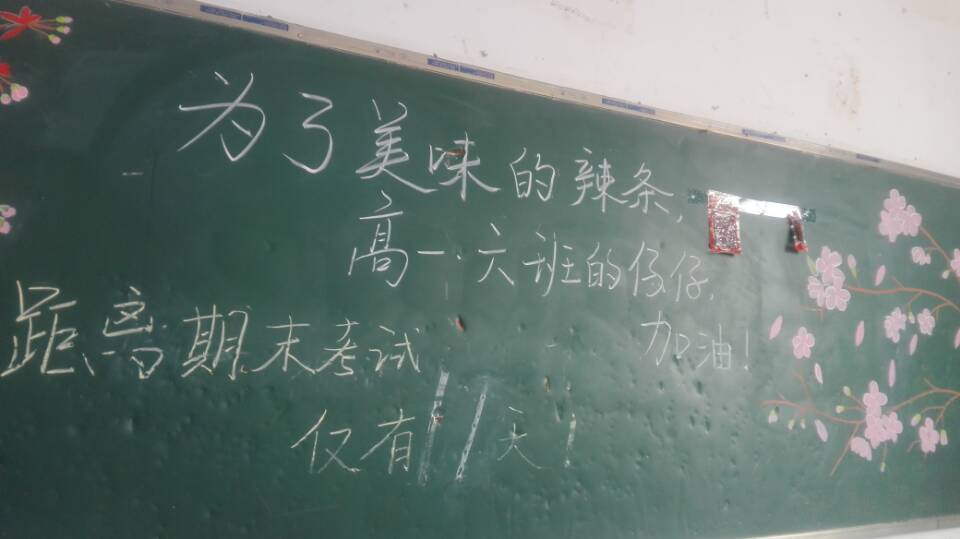 为了美味的辣条,
高一·六班的仔仔,
加油!
距离期末考试
仅有11天!